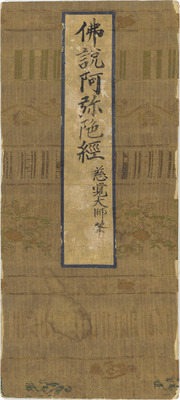 佛說阿弥陁經
慈覚大師筆